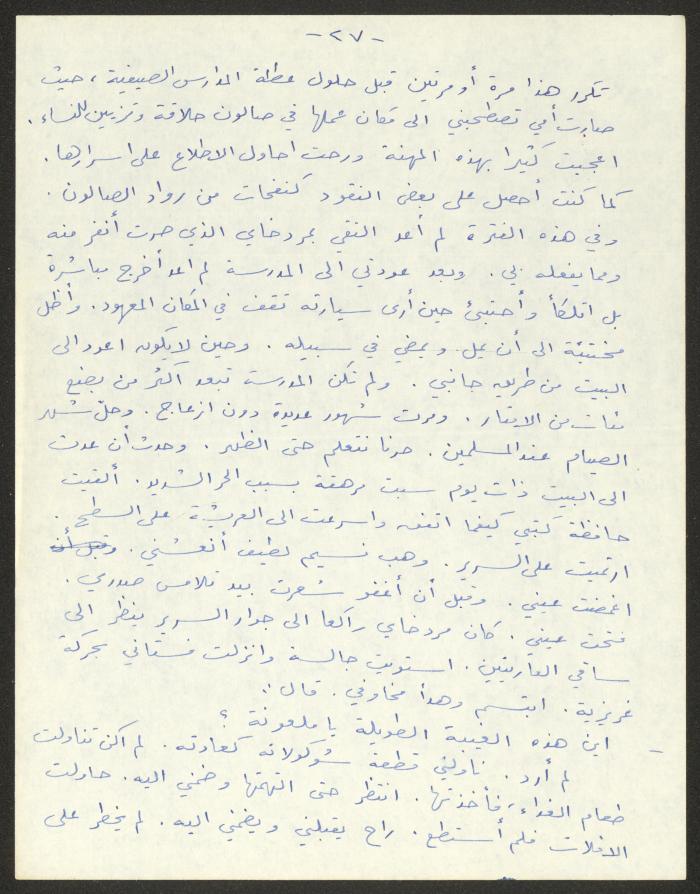 -٢٧-
تكرر هذا مرة أو مرتين قبل حلول عطلة المدارس الصيفية، حيث
صارت أمي تصطحبني الى مكان عملها في صالون حلاقة وتزيين للنساء.
اعجبت كثيرا بهذه المهنة ورحت احاول الاطلاع على اسرارها.
كما كنت أحصل على بعض النقود كنفحات من رواد الصالون.
وفي هذه الفترة لم أعد التقي بمردخاي الذي صرت أنفر منه
ومما يفعله بي. وبعد عودتي الى المدرسة لم اعد أخرج مباشرة
بل اتلكأ وأختبئ حين أرى سيارته تقف في المكان المعهود. وأظل
مختبئة الى أن يمل ويمضي في سبيله. وحين لا يكون اعود الى
البيت من طريق جانبي. ولم تكن المدرسة تبعد اكثر من بضع
مئات من الامتار. ومرت شهور عديدة دون ازعاج. وحلّ شهر
الصيام عند المسلمين. صرنا نتعلم حتى الظهر. وحدث أن عدت
الى البيت ذات يوم سبت مرهقة بسبب الحر الشديد. ألقيت
حافظة كتبي كيفما اتفق واسرعت الى العريشة على السطح.
ارتميت على السرير. وهب نسيم لطيف أنعشني. وقبل أن
اغمضت عيني. وقبل أن أغفو شعرت بيد تلامس صدري.
فتحت عيني. كان مردخاي راكعا الى جوار السرير ينظر الى
ساقي العاريتين. استويت جالسة وانزلت فستاني بحركة
غريزية. ابتسم وهدأ مخاوفي. قال:
- اين هذه الغيبة الطويلة يا ملعونة؟
لم أرد. ناولني قطعة شوكولاته كعادته. لم اكن تناولت
طعام الغداء، فأخذتها. انتظر حتى التهمتها وضمني اليه. حاولت
الافلات فلم أستطع. راح يقبلني ويضمني اليه. لم يخطر على